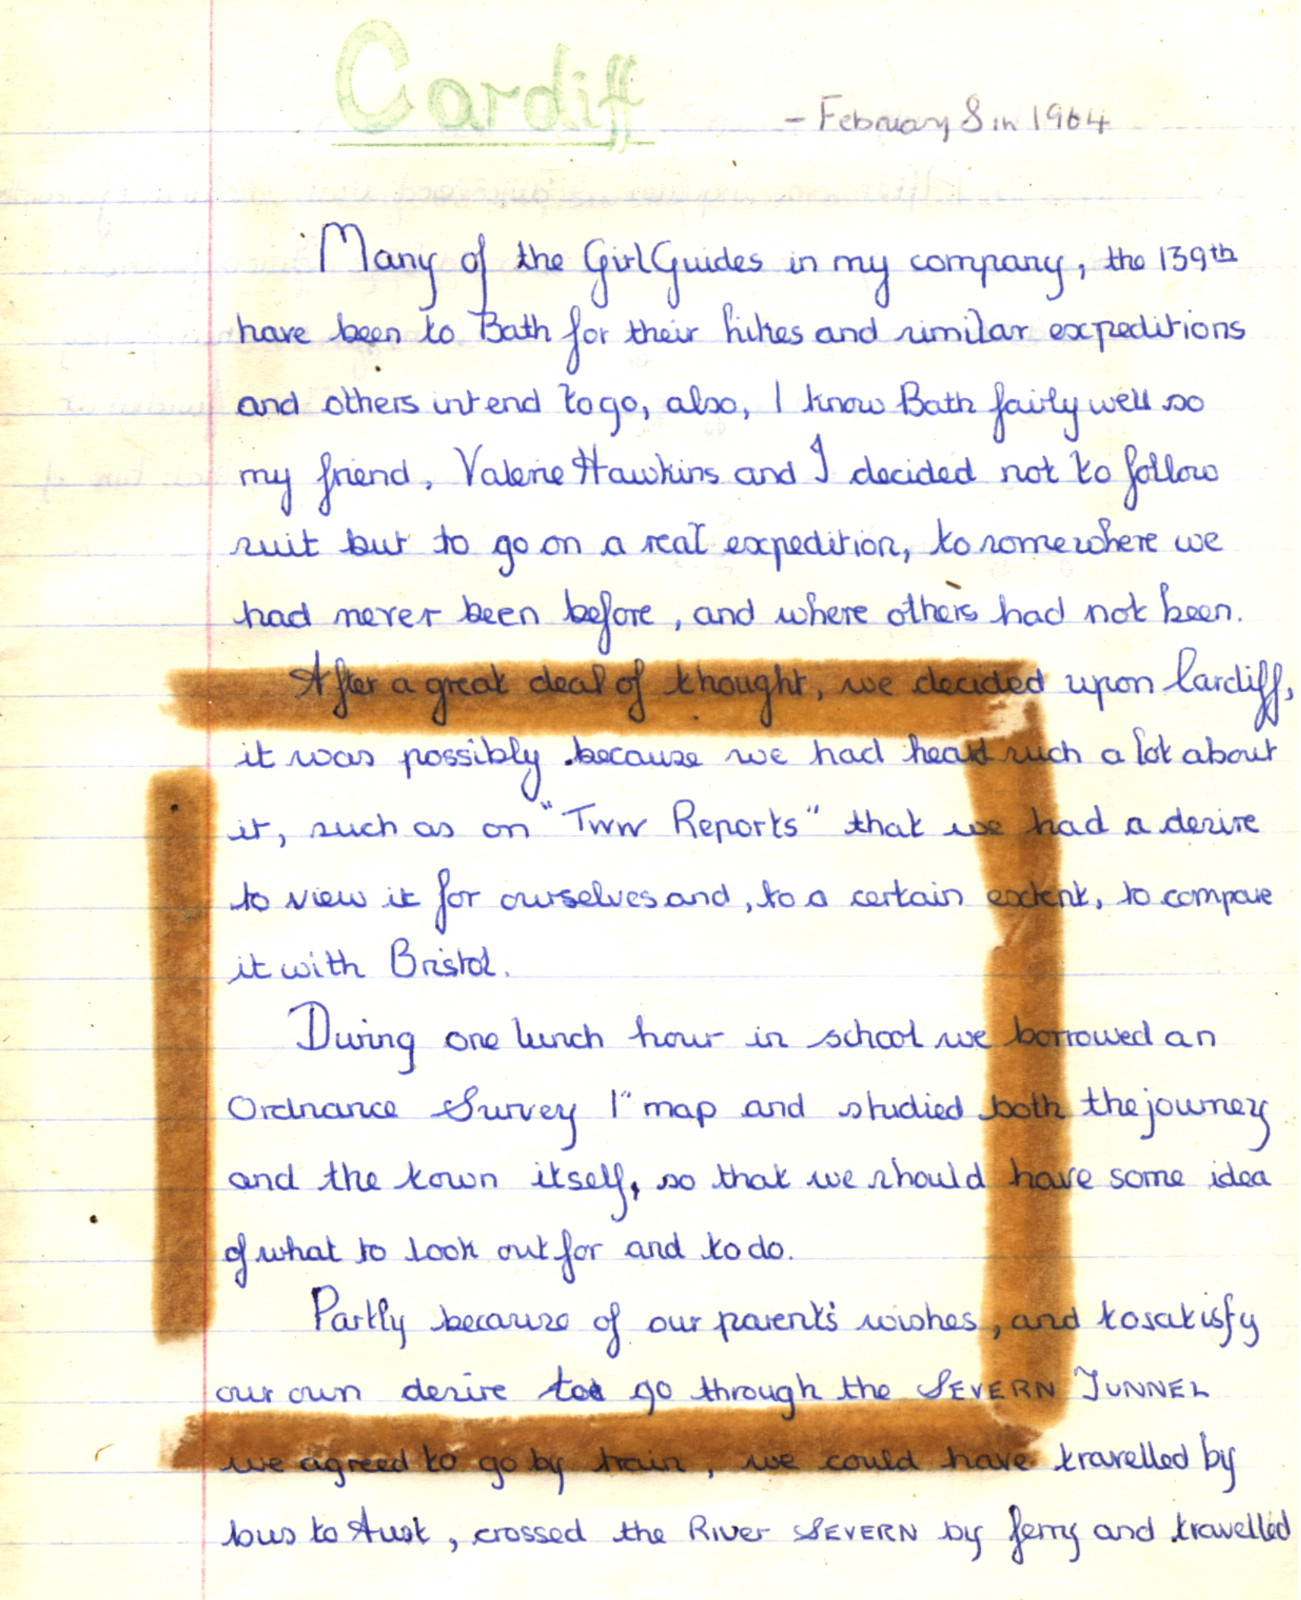 Cardiff
- February 8 in 1964
Many of the Girl Guides in my company, the 139th
have been to Bath for their hikes and similar expeditions
and others intend to go, also, I know Bath fairly well so
my friend, Valerie Hawkins and I decided not to follow
suit but to go on a real expedition, to somewhere we
had never been before, and where others had not been.
After a great deal of thought, we decided upon Cardiff,
it was possibly because we had heard such a lot about
it, such as on "Tww Reports" that we had a desire
to view it for ourselves and, to a certain extent, to compare
it with Bristol.
During one lunch hour in school we borrowed an
Ordnance Survey 1" map and studied both the journey
and the town itself, so that we should have some idea
of what to look out for and to do.
Partly because of our parent's wishes, and to satisfy
our own desire to go through the SEVERN TUNNEL
we agreed to go by train, we could have travelled by
bus to Aust, crossed the RIVER SEVERN by ferry and travelled